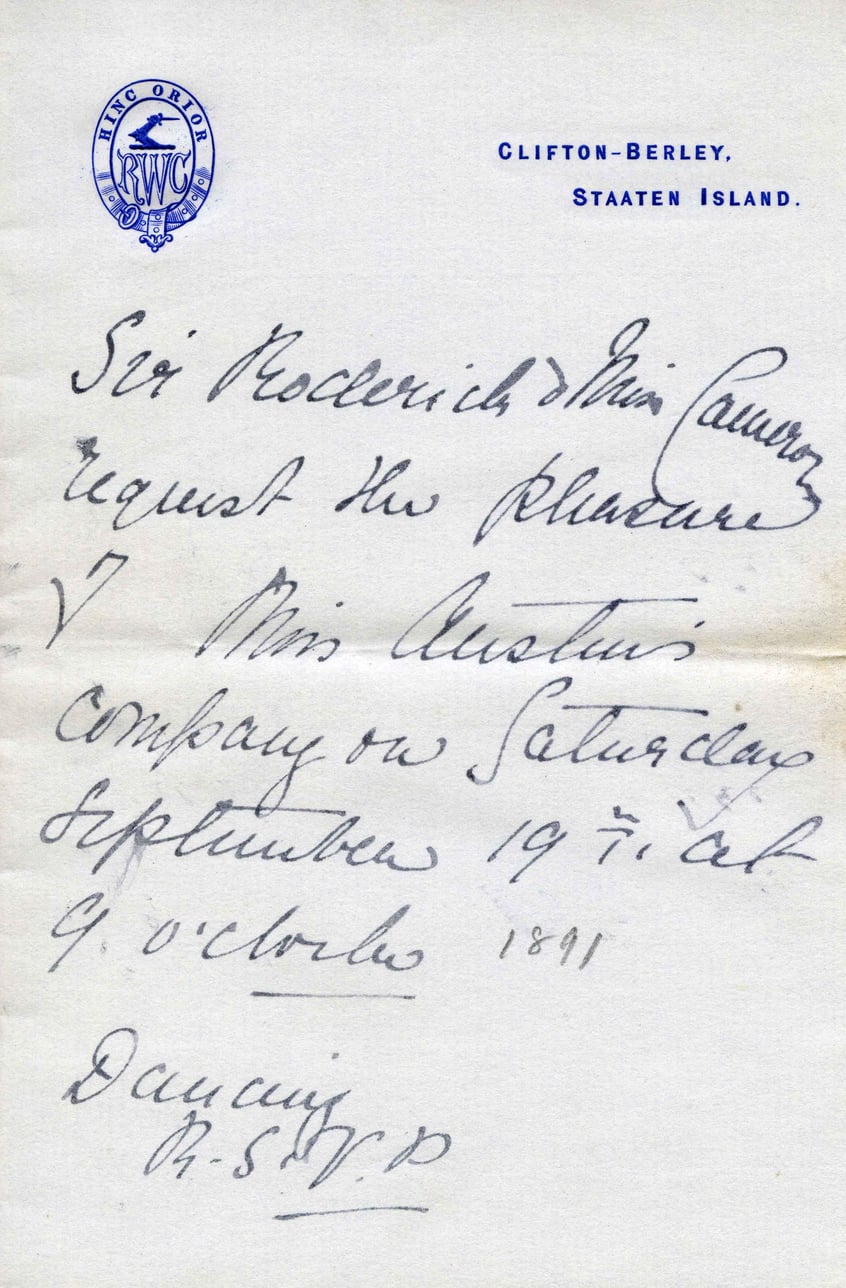 HINC ORIOR
RWC
CLIFTON-BERLEY,
STAATEN ISLAND.
Sir Roderick & Miss Cameron
request the pleasure
of Miss Austin's
company on Saturday
September 19th. at
9. o'clock 1891
Dancing
R.S.V.P